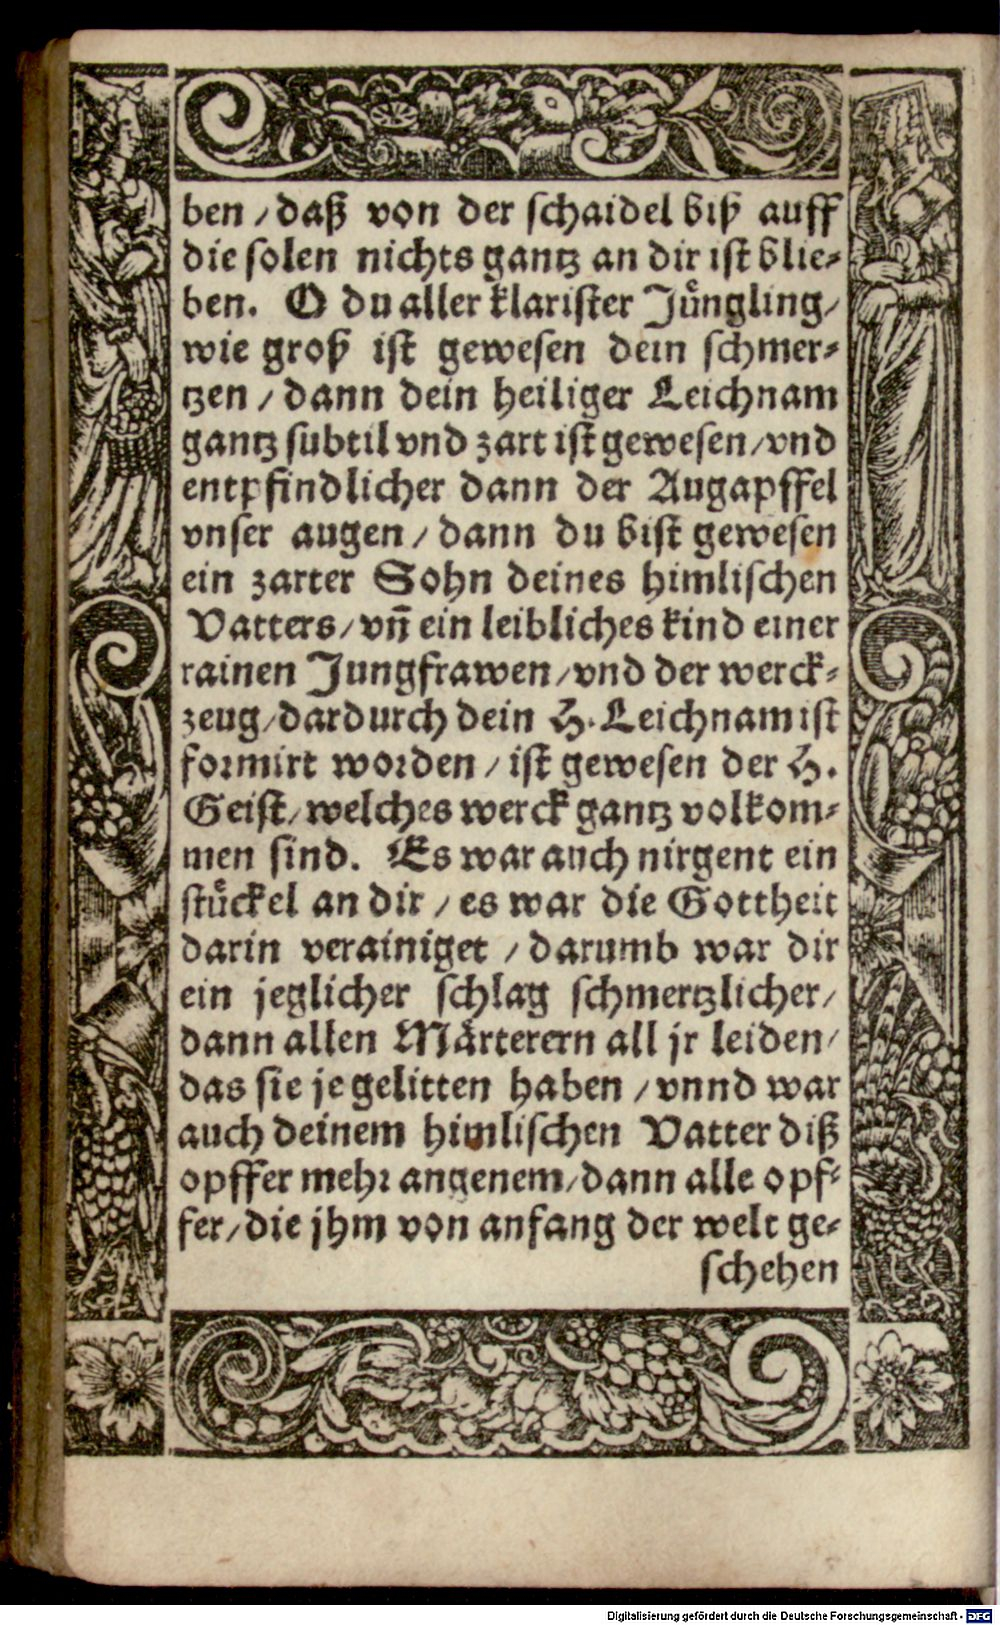 ben / daß von der schaidel biß auff
die solen nichts gantz an dir ist blie-
ben. O du aller klarister Juͤngling/
wie groß ist gewesen dein schmer-
tzen / dann dein heiliger Leichnam
gantz subtil vnd zart ist gewesen / vnd
entpfindlicher dann der Augapffel
vnser augen / dann du bist gewesen
ein zarter Sohn deines himlischen
Vatters / vñ ein leibliches kind einer
rainen Jungfrawen / vnd der werck-
zeug / dardurch dein H. Leichnam ist
formirt worden / ist gewesen der H.
Geist / welches werck gantz volkom-
men sind. Es war auch nirgent ein
stuͤckel an dir / es war die Gottheit
darin verainiget / darumb war dir
ein jeglicher schlag schmertzlicher/
dann allen Maͤrterern all jr leiden/
das sie je gelitten haben / vnnd war
auch deinem himlischen Vatter diß
opffer mehr angenem / dann alle opf-
fer / die jhm von anfang der welt ge-
schehen
Digitalisierung gefördert durch die Deutsche Forschungsgemeinschaft - DFG